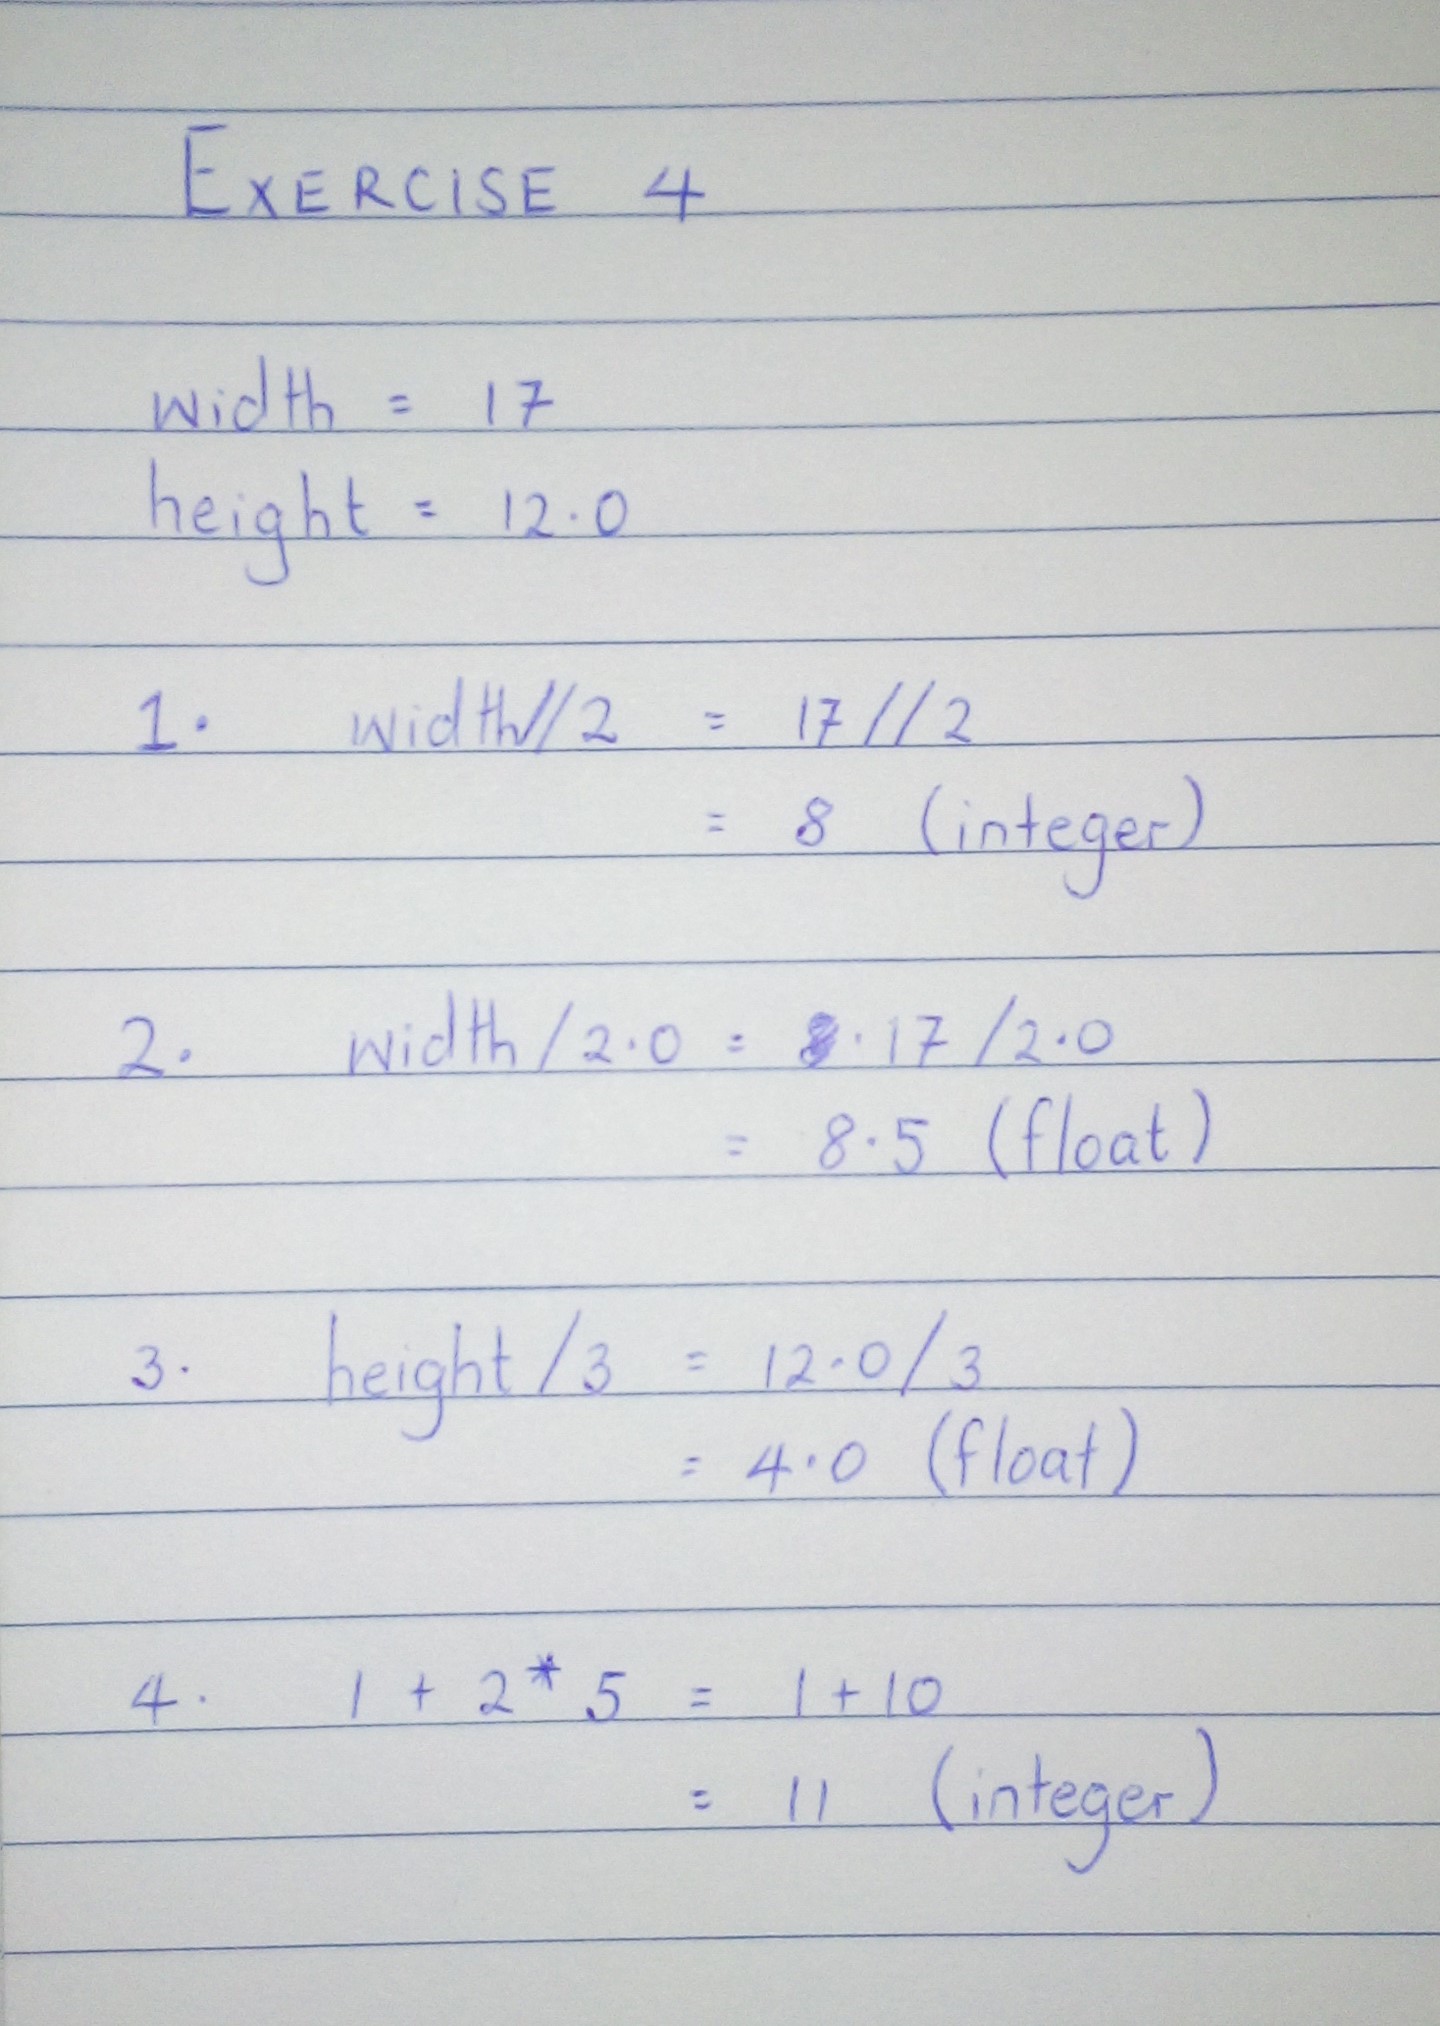 EXERCISE 4
width = 17
height = 12.0
1. width//2 = 17//2
= 8 (integer)
2. width/2.0 = 17/2.0
= 8.5 (float)
3. height/3 = 12.0/3
= 4.0 (float)
4. 1 + 2*5 = 1+10
= 11 (integer)